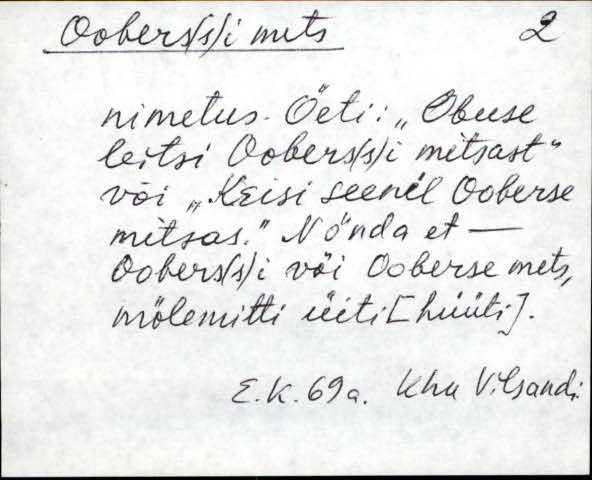 Oobers(s)i mets 2
nimetus. Öeti: „Obuse
leitsi Oobers(s)i mitsast"
või „Keisi seenel Ooberse
mitsas." Nönda et —
Oobers(s)i või Ooberse mets,
mölemitti üiti [hüüti].
E.K. 69a. Khu Vilsandi